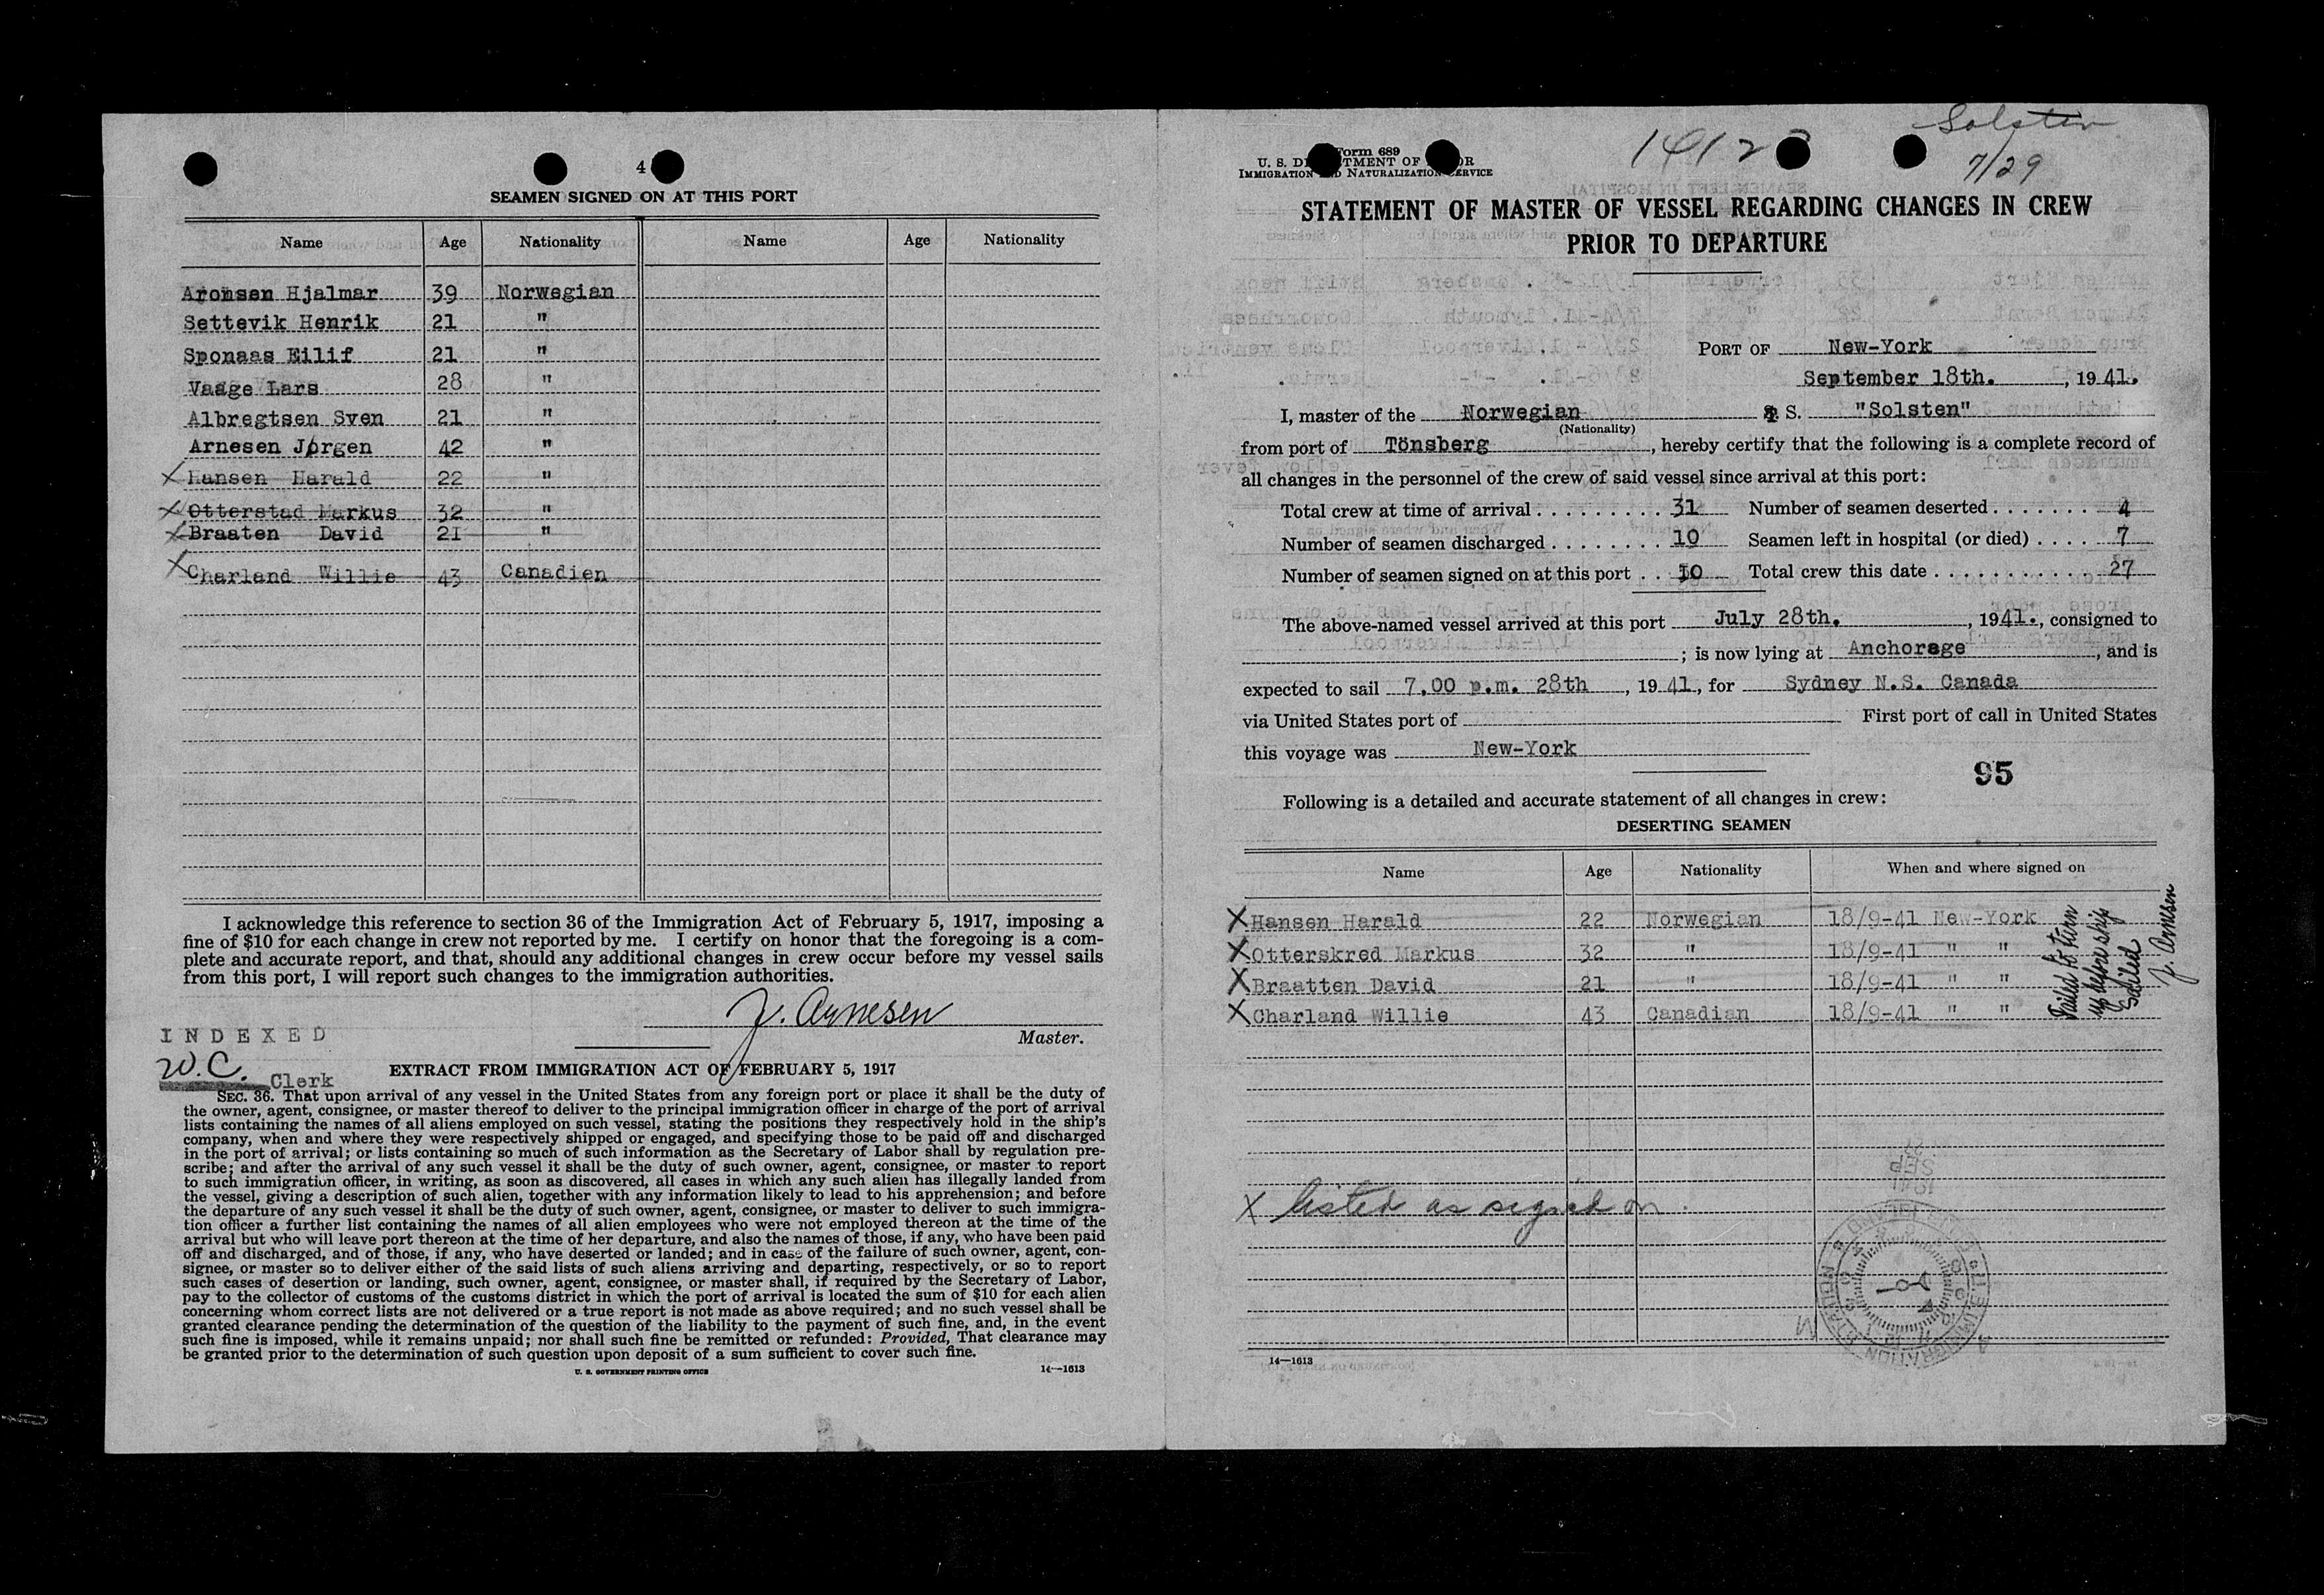 4
SEAMEN SIGNED ON AT THIS PORT
Name Age Nationality Name Age Nationality
Aronsen Hjalmar 39 Norwegian
Settevik Henrik 21 "
Sponaas Eilif 21 "
Vaage Lars 28 "
Albregtsen Sven 21 "
Arnesen Jørgen 42 "
X Hansen Harald 22 "
X Otterstad Markus 32 "
X Braaten David 21 "
X Charland Willie 43 Canadien
I acknowledge this reference to section 36 of the Immigration Act of February 5, 1917, imposing a
fine of $10 for each change in crew not reported by me. I certify on honor that the foregoing is a com-
plete and accurate report, and that, should any additional changes in crew occur before my vessel sails
from this port, I will report such changes to the immigration authorities.
J. Arnesen
Master.
INDEXED
W.C. Clerk
EXTRACT FROM IMMIGRATION ACT OF FEBRUARY 5, 1917
SEC. 36. That upon arrival of any vessel in the United States from any foreign port or place it shall be the duty of
the owner, agent, consignee, or master thereof to deliver to the principal immigration officer in charge of the port of arrival
lists containing the names of all aliens employed on such vessel, stating the positions they respectively hold in the ship's
company, when and where they were respectively shipped or engaged, and specifying those to be paid off and discharged
in the port of arrival; or lists containing so much of such information as the Secretary of Labor shall by regulation pre-
scribe; and after the arrival of any such vessel it shall be the duty of such owner, agent, consignee, or master to report
to such immigration officer, in writing, as soon as discovered, all cases in which any such alien has illegally landed from
the vessel, giving a description of such alien, together with any information likely to lead to his apprehension; and before
the departure of any such vessel it shall be the duty of such owner, agent, consignee, or master to deliver to such immigra-
tion officer a further list containing the names of all alien employees who were not employed thereon at the time of the
arrival but who will leave port thereon at the time of her departure, and also the names of those, if any, who have been paid
off and discharged, and of those, if any, who have deserted or landed; and in case of the failure of such owner, agent, con-
signee, or master so to deliver either of the said lists of such aliens arriving and departing, respectively, or so to report
such cases of desertion or landing, such owner, agent, consignee, or master shall, if required by the Secretary of Labor,
pay to the collector of customs of the customs district in which the port of arrival is located the sum of $10 for each alien
concerning whom correct lists are not delivered or a true report is not made as above required; and no such vessel shall be
granted clearance pending the determination of the question of the liability to the payment of such fine, and, in the event
such fine is imposed, while it remains unpaid; nor shall such fine be remitted or refunded: Provided, That clearance may
be granted prior to the determination of such question upon deposit of a sum sufficient to cover such fine.
U. S. GOVERNMENT PRINTING OFFICE 14—1613
Solsten
7/29
Form 689
U. S. DEPARTMENT OF LABOR
IMMIGRATION AND NATURALIZATION SERVICE
STATEMENT OF MASTER OF VESSEL REGARDING CHANGES IN CREW
PRIOR TO DEPARTURE
PORT OF New-York
September 18th. , 1941.
I, master of the Norwegian S. "Solsten"
(Nationality)
from port of Tönsberg , hereby certify that the following is a complete record of
all changes in the personnel of the crew of said vessel since arrival at this port:
Total crew at time of arrival . . . . . . . . . 31 Number of seamen deserted . . . . . . . 4
Number of seamen discharged . . . . . . . . 10 Seamen left in hospital (or died) . . . . 7
Number of seamen signed on at this port . . 10 Total crew this date . . . . . . . . . . . . 27
The above-named vessel arrived at this port July 28th. , 1941., consigned to
; is now lying at Anchorage , and is
expected to sail 7.00 p.m. 28th , 1941, for Sydney N.S. Canada
via United States port of First port of call in United States
this voyage was New-York
95
Following is a detailed and accurate statement of all changes in crew:
DESERTING SEAMEN
Name Age Nationality When and where signed on
X Hansen Harald 22 Norwegian 18/9-41 New-York
X Otterskred Markus 32 " 18/9-41 " "
X Braatten David 21 " 18/9-41 " "
X Charland Willie 43 Canadian 18/9-41 " "
Failed to turn
up before ship
Sailed
J. Arnesen
X listed as signed on.
14—1613